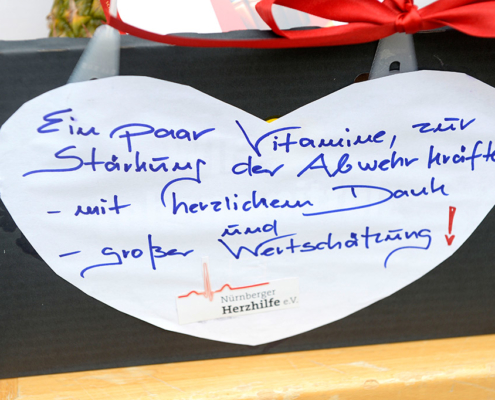 Ein paar Vitamine, zur
Stärkung der Abwehrkräfte
- mit herzlichem Dank
und
- großer Wertschätzung!
Nürnberger
Herzhilfe e.V.